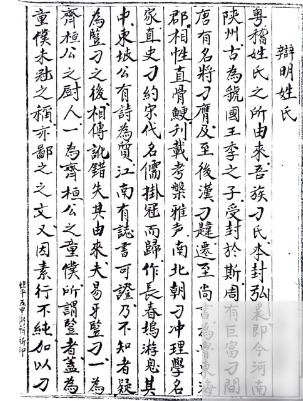 辯明姓氏
粵稽姓氏之所由來吾族刁氏本封弘農即今河南
陝州古為虢國王季之子受封於斯周有巨富刁閒
唐有名將刁膺及至後漢刁韙遷至尚書為魯東海
郡相性直骨鯁刊載考槃雅声南北朝刁冲理學名
家直史刁約宋代名儒掛冠而歸作長春塢游息其
中東坡公有詩為質江南有誌書可證乃不知者疑
為豎刁之後相傳訛錯失其由來夫易牙豎刁一為
齊桓公之厨人一為齊桓公之童僕所謂豎者蓋為
童僕未冠之稱亦鄙之之文又因素行不純加以刁